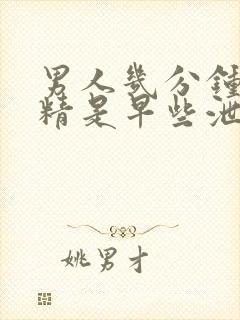 男人幾分鍾
精是早些泄
姚男才